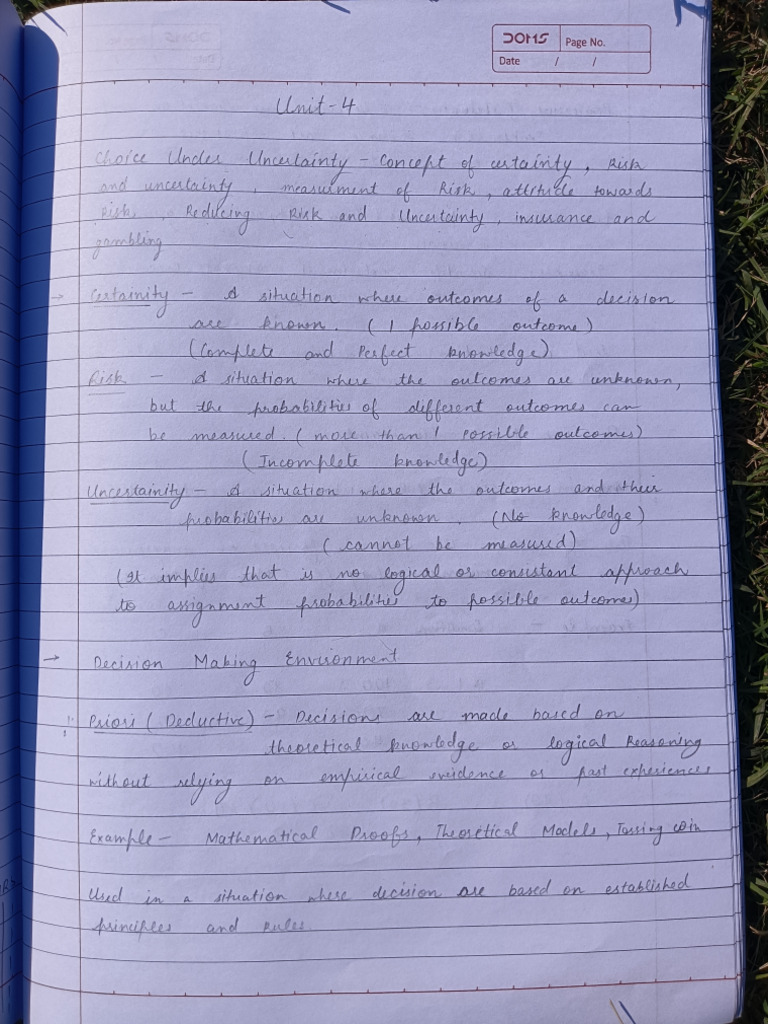 DOMS Page No.
Date / /
Unit-4
Choice Under Uncertainty - Concept of certainity, Risk
and uncertainty, measurment of Risk, attitude towards
Risk, Reducing Risk and Uncertainty, insurance and
gambling
→ Certainity - A situation where outcomes of a decision
are known. (1 possible outcome)
(Complete and Perfect knowledge)
Risk - A situation where the outcomes are unknown,
but the probabilities of different outcomes can
be measured. (more than 1 possible outcomes)
(Incomplete knowledge)
Uncertainity - A situation where the outcomes and their
probabilities are unknown. (No knowledge)
(cannot be measured)
(It implies that is no logical or consistant approach
to assignment probabilities to possible outcomes)
→ Decision Making Environment
Priori (Deductive) - Decisions are made based on
theoretical knowledge or logical Reasoning
without relying on empirical evidence or past experiences
Example - Mathematical Proofs, Theoretical Models, Tossing coin
Used in a situation where decision are based on established
principles and rules.